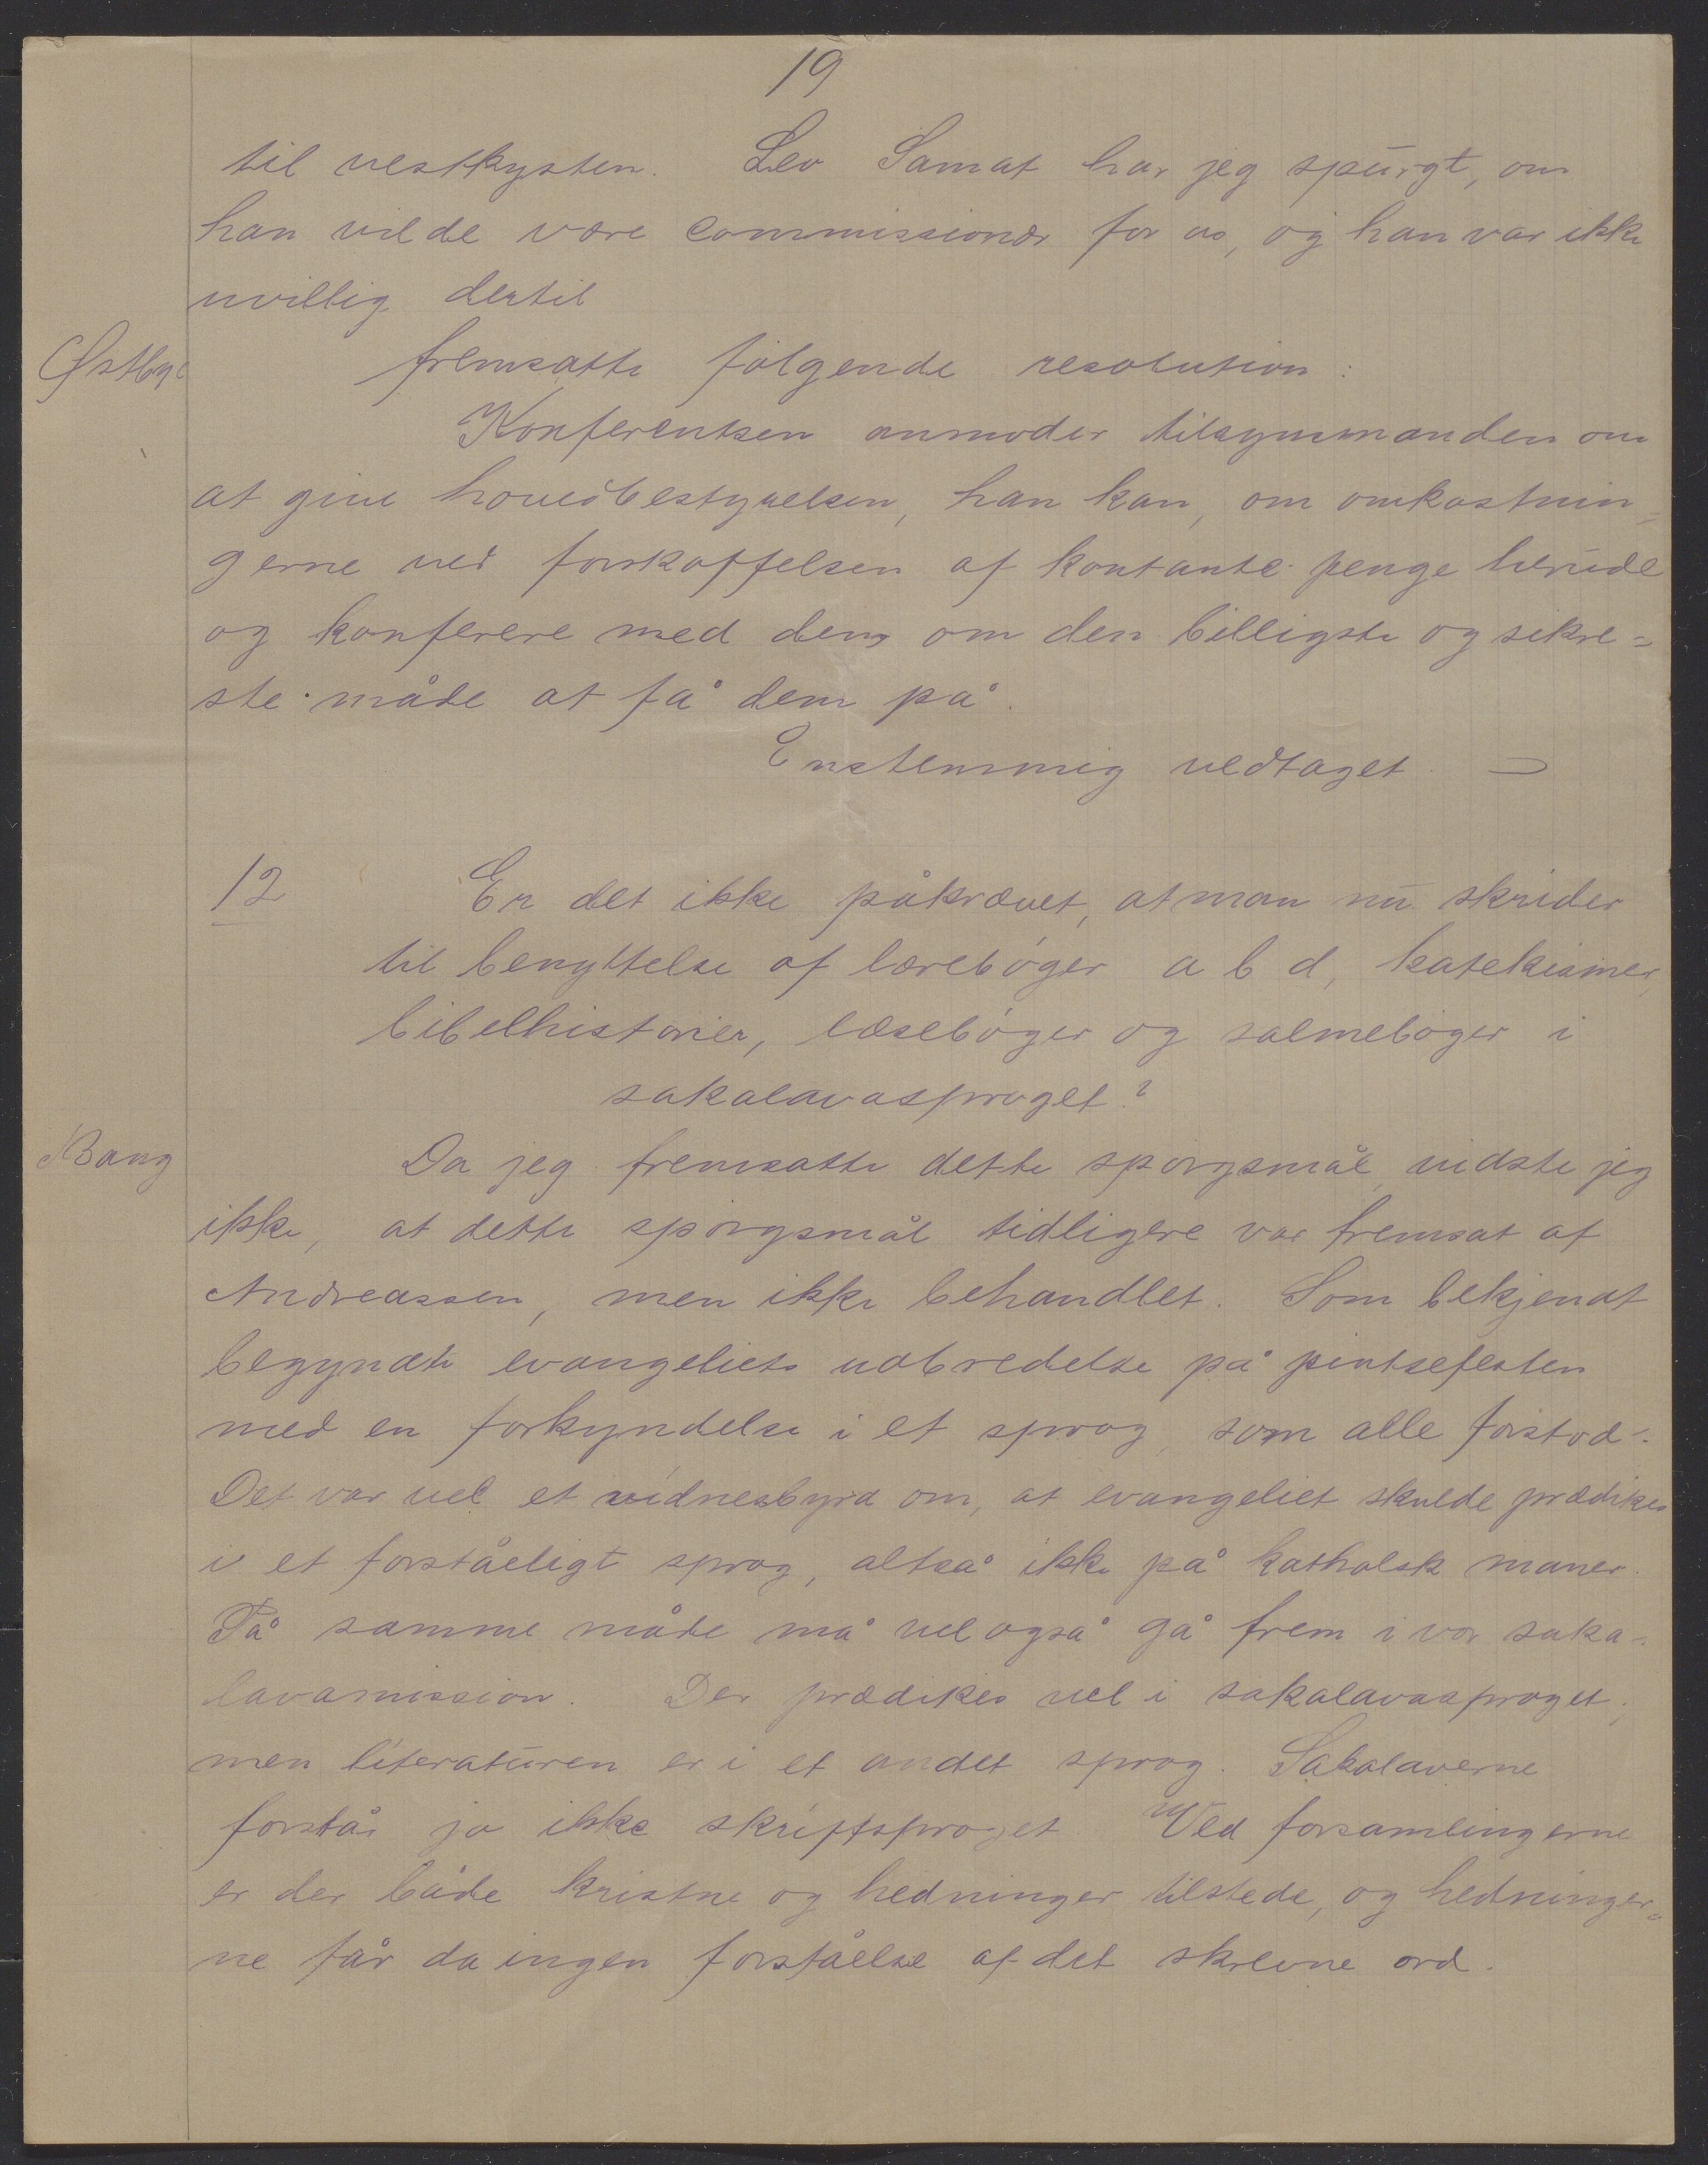 19
til vestkysten. Leo Samat har jeg spurgt, om
han vilde være commissionær for os, og han var ikke
uvillig dertil
Østbye fremsatte følgende resolution:
Konferentsen anmoder tilsynsmanden om
at give hovedbestyrelsen, han kan, om omkostnin=
gerne ved forskaffelsen af kontante penge herude
og konferere med dem om den billigste og sikre=
ste måde at få dem på.
Enstemmig vedtaget.
12 Er det ikke påkrævet, at man nu skrider
til benyttelse af lærebøger a b d, katekismer,
bibelhistorier, læsebøger og salmebøger i
sakalavasproget?
Bang Da jeg fremsatte dette spørgsmål, vidste jeg
ikke, at dette spørgsmål tidligere var fremsat af
Andreassen, men ikke behandlet. Som bekjendt
begyndte evangeliets udbredelse på pintsefesten
med en forkyndelse i et sprog, som alle forstod.
Det var vel et vidnesbyrd om, at evangeliet skulde prædikes
i et forståeligt sprog, altså ikke på katholsk maner.
På samme måde må vel også gå frem i vor saka-
lavamission. Der prædikes vel i sakalavasproget,
men literaturen er i et andet sprog. Sakalaverne
forstår jo ikke skriftsproget Ved forsamlingerne
er der både kristne og hedninger tilstede, og hedninger=
ne får da ingen forståelse af det skrevne ord.